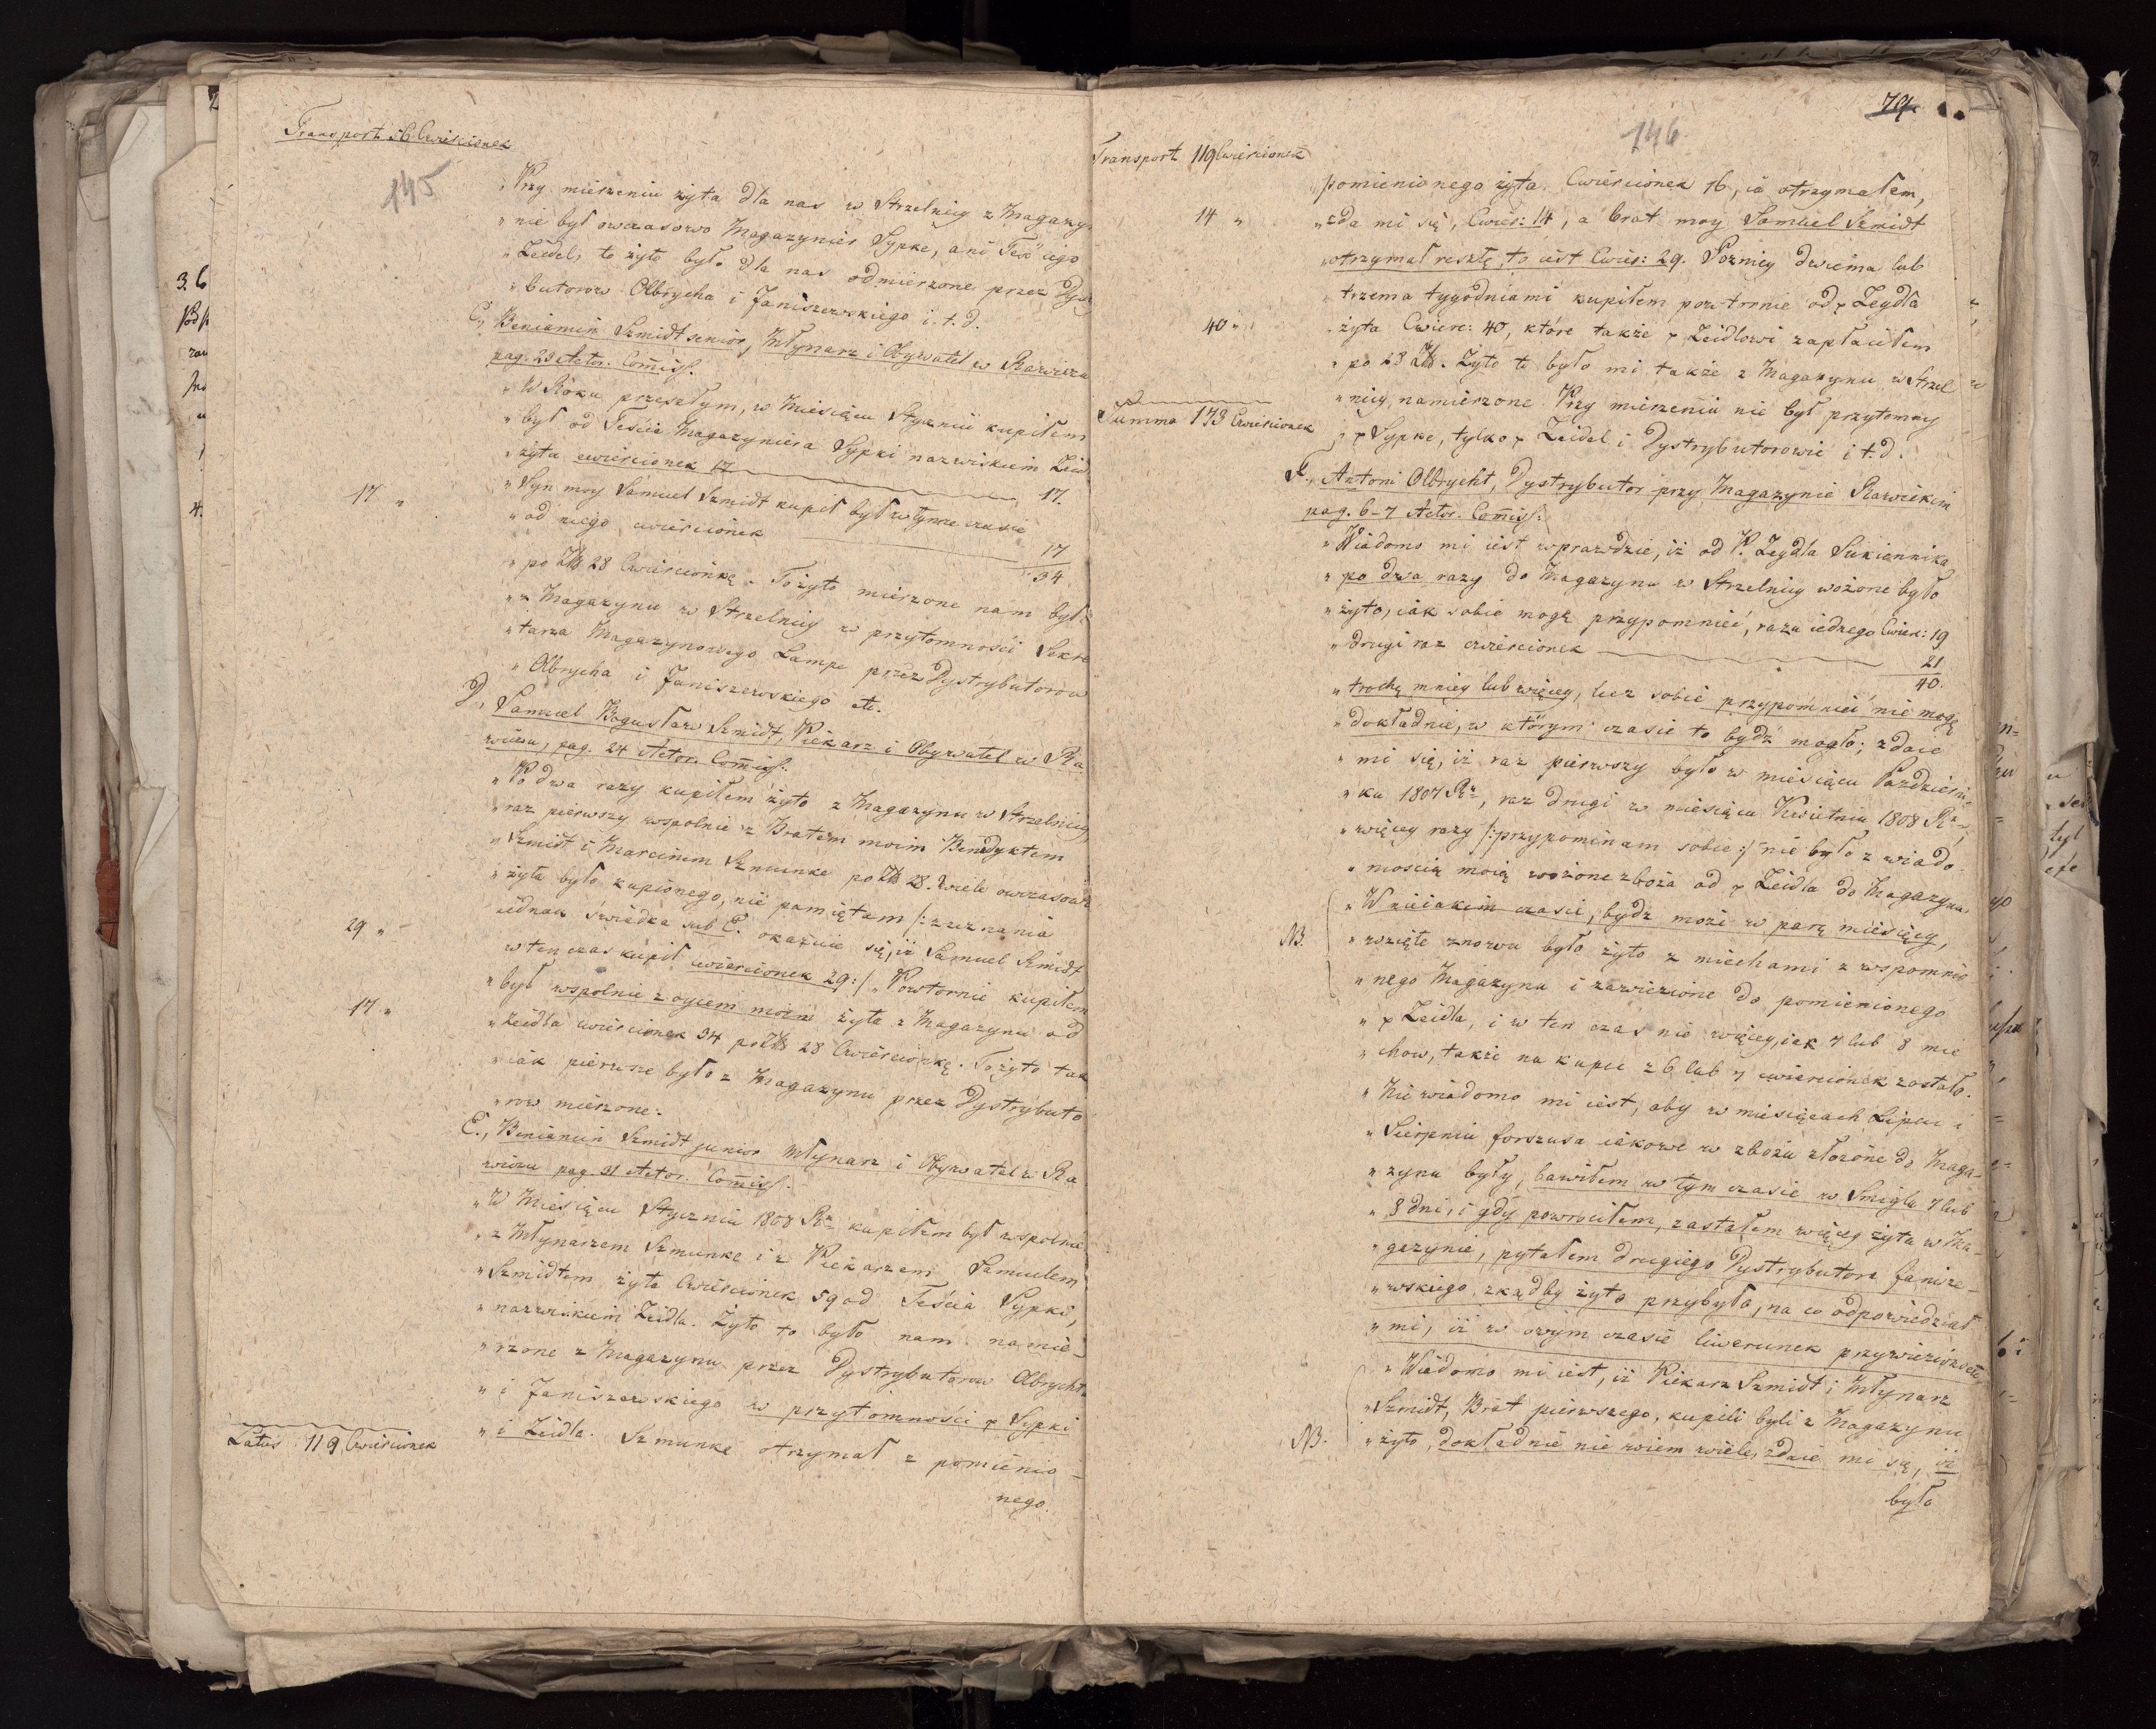 Transport 56 Cwiercionek
145
„Przy mierzeniu żyta dla nas w Strzelnicy z Magazy
„nie był owczasowo Magazynier Sypke, ani Teść iego
„Zeidel, to żyto było dla nas odmierzone przez Dys
„butorow Olbrycha i Janiszewskiego i. t. d.
C, Beniamin Szmidt senior, Młynarz i Obywatel w Rawiczu
pag. 23 Actor. Comiss.
„W Roku przeszłym, w Miesiącu Styczniu kupiłem
„był od Teścia Magazyniera Sypki nazwiskiem Zeid
„żyta cwiercionek 17 17.
17 „
„Syn moy Samuel Szmidt kupił był w tymze czasie
„od niego cwiercionek 17
34
„po Zł 28 Cwiercionkę. To żyto mierzone nam było
„z Magazynu w Strzelnicy w przytomności Sekre
„tarza Magazynowego Lampe przez Dystrybutorow
„Olbrycha i Janiszewskiego etc.
D, Samuel Bogusław Szmidt, Piekarz i Obywatel w Ra
wiczu, pag. 24 Actor. Comiss.
„Po dwa razy kupiłem żyto z Magazynu w Strzelnicy,
„raz pierwszy wspolnie z Bratem moim Benedyktem
„Szmidt i Marcinem Szmunke po Zł 28. Wiele owczasowie
„żyta było kupionego, nie pamiętam /: z zeznania
iednak świadka sub E. okazuie się, iż Samuel Szmidt
29 „
w ten czas kupił cwiercionek 29:/ „Powtornie kupiłem
„był wspolnie z oycem moim żyta z Magazynu od
17 „
„Zeidla cwiercionek 34 po Zł 28 Cwiercionkę. To żyto tak
„iak pierwsze było z Magazynu przez Dystrybuto
„row mierzone.
E., Beniamin Szmidt junior Młynarz i Obywatel w Ra
wiczu pag. 31 Actor. Comiss.
„W Miesiącu Styczniu 1808 Rr kupiłem był wspolnie
„z Młynarzem Szmunke i z Piekarzem Samuelem
„Szmidtem żyta Cwiercionek 59 od Teścia Sypki,
„nazwiskiem Zeidla. Żyto to było nam namie-
„rzone z Magazynu przez Dystrybutorow Olbrycht
„i Janiszewskiego w przytomności p Sypki
„i Zeidla. Szmunke otrzymał z pomienio-
Latus 119 Cwiercionek
nego.
79.
146
Transport 119 Cwiercionek
pomienionego żyta Cwiercionek 16, ia otrzymałem,
14 „
„zda mi się, Cwier: 14, a brat moy Samuel Szmidt
„otrzymał resztę, to iest Cwier: 29. Pozniey dwiema lub
„trzema tygodniami kupiłem powtornie od p Zeydla
40 „
„żyta Cwierc: 40, które także p Zeidlowi zapłaciłem
„po 23 Zł. Żyto to było mi także z Magazynu w Strzel
„nicy, namierzone. Przy mierzeniu nie był przytomny
Summa 173 Cwiercionek
„p Sypke, tylko p Zeidel i Dystrybutorowie i t. d.
F., Antoni Olbrycht, Dystrybutor przy Magazynie Rawickim
pag. 6-7 Actor. Comiss.
„Wiadomo mi iest wprawdzie, iż od P. Zeydla Sukiennika
„po dwa razy do Magazynu w Strzelnicy wożone było
„żyto, iak sobie mogę przypomnieć, razu iednego Cwierc: 19
„drugi raz cwiercionek 21
40.
„trochę mniey lub więcey, lecz sobie przypomnieć nie mogę
„dokładnie, w którym czasie to bydź mogło; zdaie
„mi się, iż raz pierwszy było w miesiącu Październi-
„ku 1807 Rr, raz drugi w miesiącu Kwietniu 1808 Rr,
„więcey razy /:przypominam sobie:/ nie było z wiado-
„mością moią wożone zboża od p Zeidla do Magazynu.
„W nieiakim czasie, bydź może w parę miesięcy,
NB.
„wzięte znowu było żyto z miechami z wspomnio
„nego Magazynu i zawiezione do pomienionego
„p Zeidla, i w ten czas nie więcey, iak 7 lub 8 mie
„chow, także na kupie z 6 lub 7 cwiercionek zostało.
„Nie wiadomo mi iest, aby w miesiącach Lipcu i
„Sierpniu forszusa iakowe w zbożu złożone do Maga-
„zynu były, bawiłem w tym czasie w Smiglu 7 lub
„8 dni, i gdy powrociłem, zastałem więcey żyta w Ma-
„gazynie, pytałem drugiego Dystrybutora Janisze-
„wskiego, zkądby żyto przybyło, na co odpowiedział
„mi, iż w owym czasie liwerunek przywieziono etc.
„Wiadomo mi iest, iż Piekarz Szmidt i Młynarz
„Szmidt, Brat pierwszego, kupili byli z Magazynu
NB.
„żyto, dokładnie nie wiem wiele, zdaie mi się, iż
było